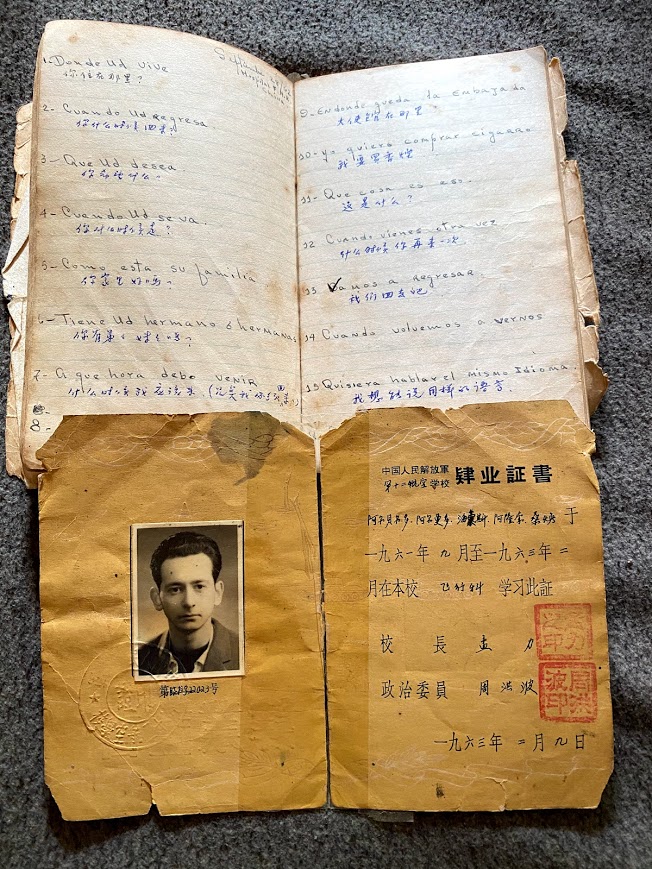 1- Donde Ud vive
你住在那里?
2- Cuando Ud regresa
你什么时候回来?
3- Que Ud desea.
你要什么?
4- Cuando Ud se va.
你什么时候走?
5- Como esta su familia
你家里好吗?
6- Tiene Ud hermano ó hermanas
7- A que hora debo venir
什么时候我应该来
8-
9- En donde queda la embajada
大使馆在那里
10- yo quiero comprar cigarro
我要买香烟
11- Que cosa es eso.
这是什么?
12 Cuando vienes otra vez
什么时候你再来一次
13 Vamos a regresar.
我们回去吧
14 Cuando volvemos a vernos
15 Quisiera hablar el mismo idioma.
我想能说同样的语言.
中国人民解放軍
第十二航空学校
肆业証書
于
一九六一年九月至一九六三年二
月在本校 飞行科 学习此証
校長 孟力
政治委員 周洪波
一九六三年二月九日